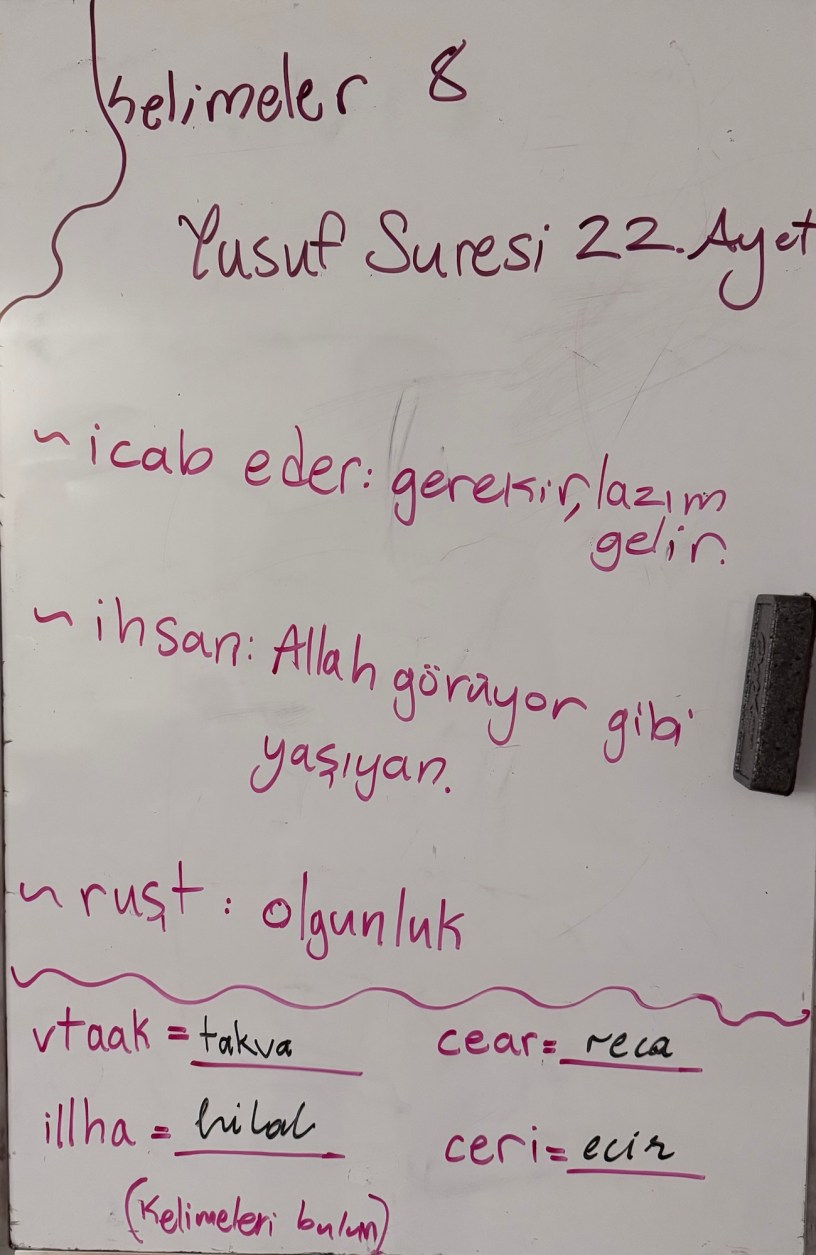 Kelimeler 8
Yusuf Suresi 22. Ayet
~ icab eder: gerekir, lazım
gelir.
~ ihsan: Allah görüyor gibi
yaşıyan.
~ ruşt : olgunluk
vtaak = takva
cear= reca
illha = hilal
ceri= ecir
(Kelimeleri bulun)